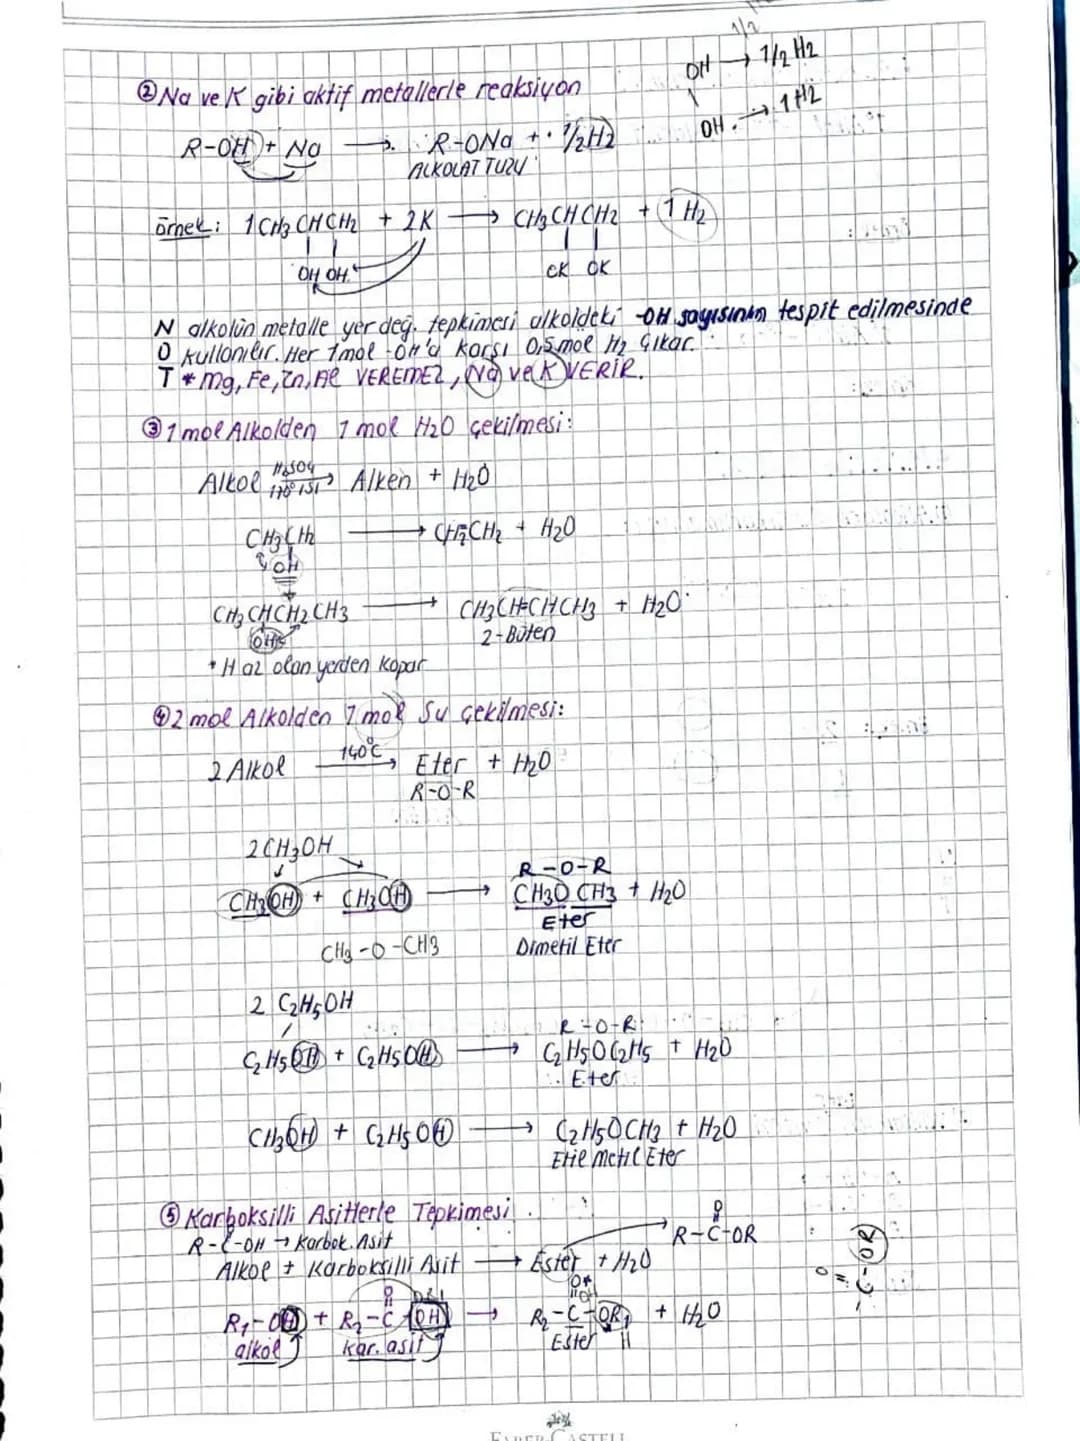 1/2
OH → 1/2 H2
OH → 1 H2
② Na ve K gibi aktif metallerle reaksiyon
R-OH + Na → R-ONa + 1/2H2
ALKOLAT TUZU
örnek: 1 CH3 CH CH2 + 2K → CH3 CH CH2 + 1 H2
OH OH OK OK
N alkolün metalle yer değ. tepkimesi alkoldeki -OH sayısının tespit edilmesinde
O kullanılır. Her 1mol -OH'a karşı 0,5 mol H2 çıkar.
T * Mg, Fe, Zn, Al VEREMEZ, Na ve K VERİR.
③ 1 mol Alkolden 1 mol H2O çekilmesi:
Alkol H2SO4 170° ISI → Alken + H2O
CH3CH2 → CH2=CH2 + H2O
OH
CH3CHCH2CH3 → CH3CH=CHCH3 + H2O
OH 2-Büten
* H az olan yerden kopar
④ 2 mol Alkolden 1 mol Su çekilmesi:
2 Alkol 140°C → Eter + H2O
R-O-R
2 CH3OH
R-O-R
CH3OH + CH3OH → CH3O CH3 + H2O
Eter
CH3-O-CH3 Dimetil Eter
2 C2H5OH
R-O-R
C2H5OH + C2H5OH → C2H5OC2H5 + H2O
Eter
CH3OH + C2H5OH → C2H5OCH3 + H2O
Etil Metil Eter
⑤ Karboksilli Asitlerle Tepkimesi
O
R-C-OH → Karbok. Asit R-C-OR
Alkol + Karboksilli Asit → Ester + H2O
O O
R1-OH + R2-C-OH → R2-C-OR1 + H2O
alkol kar. asit Ester
O
-C-OR
FABER-CASTELL